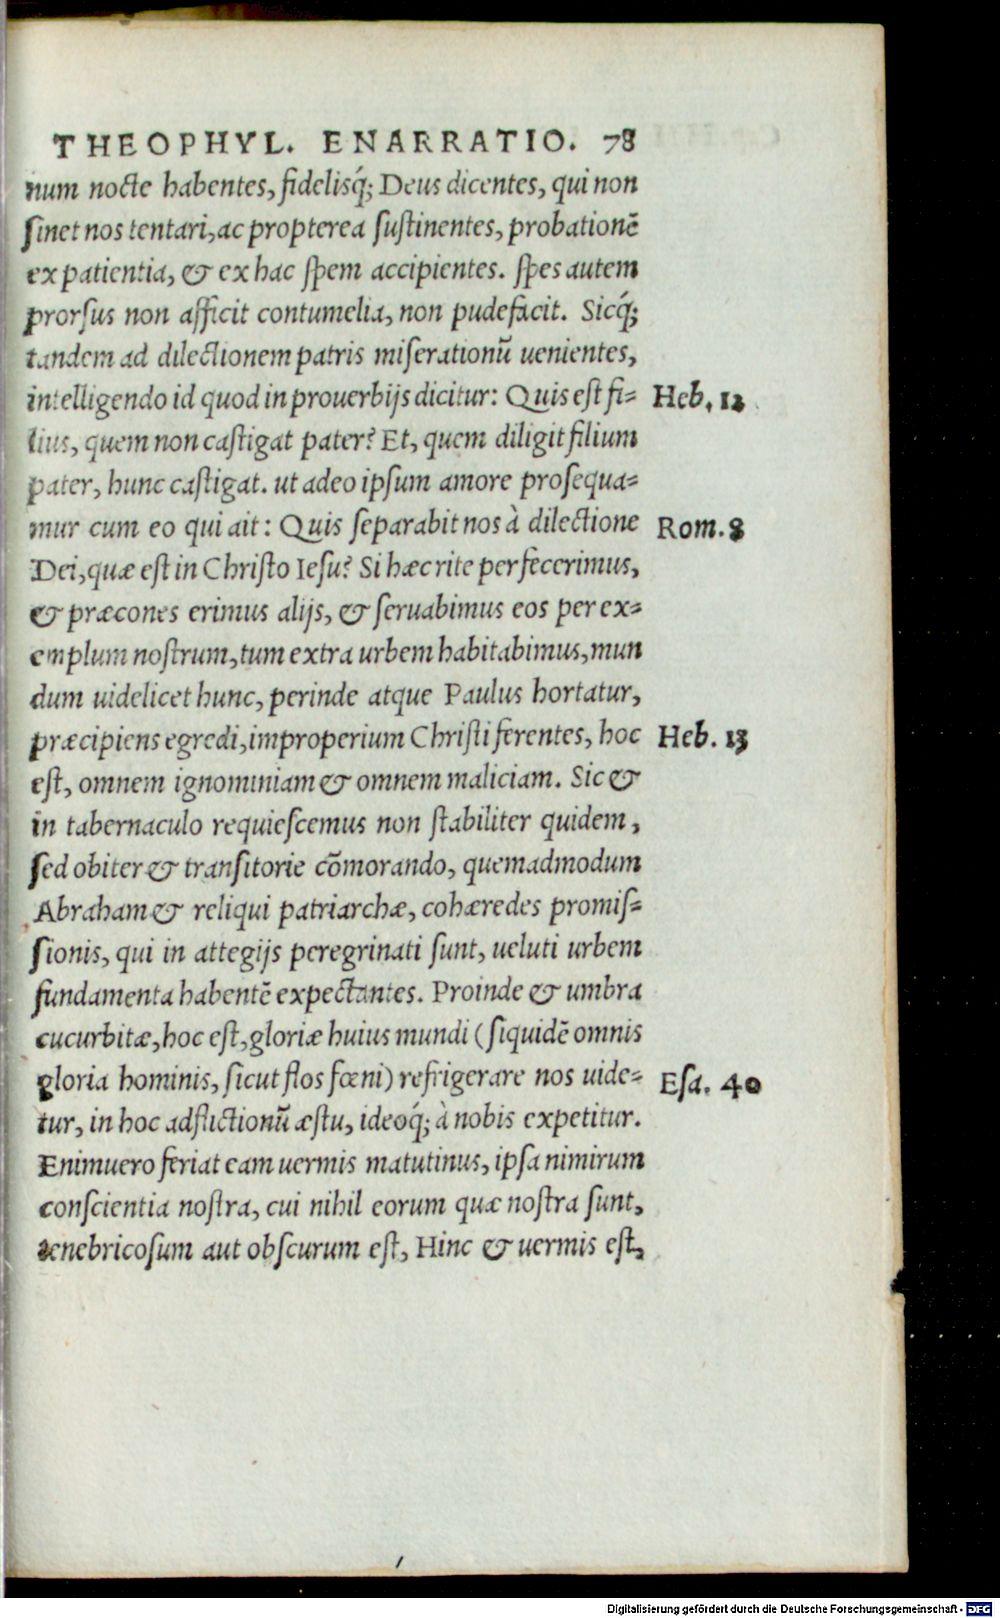 THEOPHYL. ENARRATIO. 78
num nocte habentes, fidelisq́; Deus dicentes, qui non
ſinet nos tentari, ac propterea ſuſtinentes, probationē
ex patientia, & ex hac ſpem accipientes. ſpes autem
prorſus non afficit contumelia, non pudefacit. Sicq́;
tandem ad dilectionem patris miſerationū uenientes,
intelligendo id quod in prouerbijs dicitur: Quis eſt fi= Heb. 12
lius, quem non caſtigat pater? Et, quem diligit filium
pater, hunc caſtigat. ut adeo ipſum amore proſequa=
mur cum eo qui ait: Quis ſeparabit nos à dilectione Rom. 8
Dei, quæ eſt in Chriſto Ieſu? Si hæc rite perfecerimus,
& præcones erimus alijs, & ſeruabimus eos per ex=
emplum noſtrum, tum extra urbem habitabimus, mun
dum uidelicet hunc, perinde atque Paulus hortatur,
præcipiens egredi, improperium Chriſti ferentes, hoc Heb. 13
eſt, omnem ignominiam & omnem maliciam. Sic &
in tabernaculo requieſcemus non ſtabiliter quidem,
ſed obiter & tranſitorie cōmorando, quemadmodum
Abraham & reliqui patriarchæ, cohæredes promiſ=
ſionis, qui in attegijs peregrinati ſunt, ueluti urbem
fundamenta habentē expectantes. Proinde & umbra
cucurbitæ, hoc eſt, gloriæ huius mundi (ſiquidē omnis
gloria hominis, ſicut flos fœni) refrigerare nos uide= Eſa. 40
tur, in hoc adflictionū æſtu, ideoq́; à nobis expetitur.
Enimuero feriat eam uermis matutinus, ipſa nimirum
conſcientia noſtra, cui nihil eorum quæ noſtra ſunt,
tenebricoſum aut obſcurum eſt, Hinc & uermis eſt,
Digitalisierung gefördert durch die Deutsche Forschungsgemeinschaft - DFG